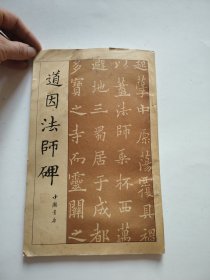 道因法師碑
中國書店
起蒙中原蕩覆具禍
以蓋法師乘杯西邁
避地三蜀居于成都
多寶之寺而靈關之